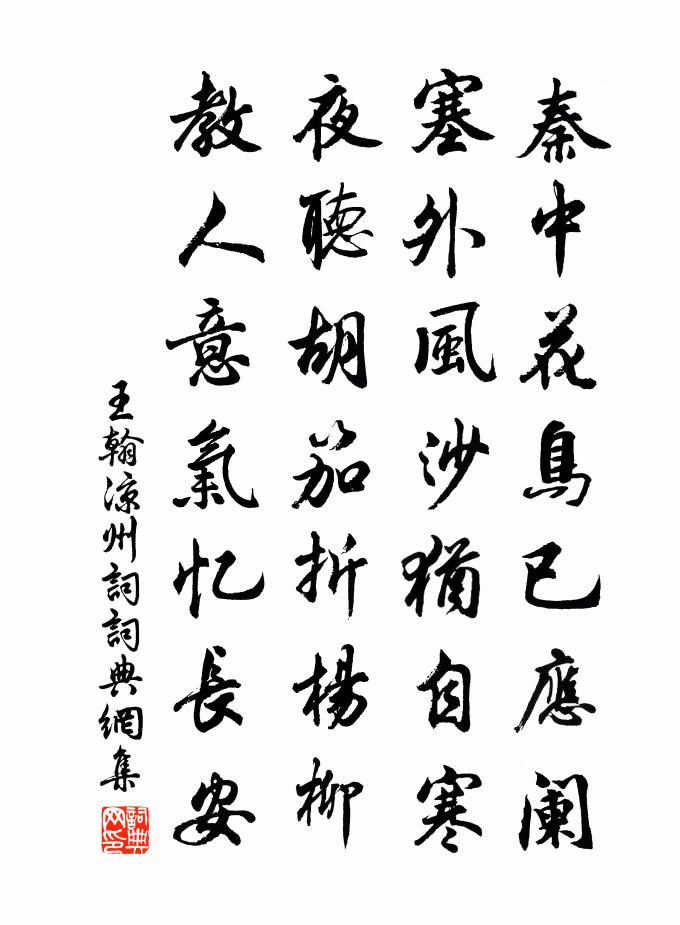 秦中花鳥已應阑
塞外風沙猶自寒
夜聽胡笳折楊柳
教人意氣忆長安
王翰凉州詞詞典網集
詞典网印